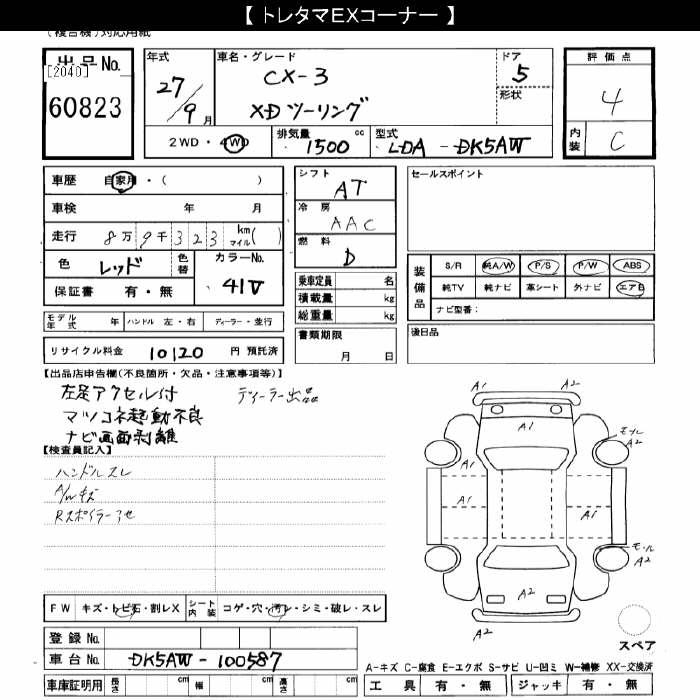 【 トレタマEXコーナー 】
(複合機)対応用紙
出品No.
[2040]
60823
年式
27/9月
車名・グレード
CX-3
XDツーリング
ドア
5
形状
評価点
4
内装
C
2WD・4WD
排気量
1500 cc
型式
LDA - DK5AW
車歴 自家用・( )
車検 年 月
走行 8万9千323 km マイル( )
色 レッド 色替
カラーNo.
41V
保証書 有・無
モデル年式 年 ハンドル 左・右 ディーラー・並行
リサイクル料金 10120 円 預託済
シフト
AT
冷房
AAC
燃料
D
乗車定員 名
積載量 kg
総重量 kg
書類期限
月 日
セールスポイント
装備品
S/R 純A/W P/S P/W ABS
純TV 純ナビ 革シート 外ナビ エアB
ナビ型番:
後日品
【出品店申告欄(不良箇所・欠品・注意事項等)】
左足アクセル付 ディーラー出品
マツコネ起動不良
ナビ画面剥離
【検査員記入】
ハンドルスレ
A/Wキズ
Rスポイラーアセ
FW キズ・トビ石・割レX シート内装 コゲ・穴・汚レ・シミ・破レ・スレ
登録No.
車台No. DK5AW - 100587
車庫証明用 長さ cm 幅 cm 高さ cm
A1 A2
A1
モール A2
A1 A1
A1
モール A2
A2
A2
スペア
A-キズ C-腐食 E-エクボ S-サビ U-凹ミ W-補修 XX-交換済
工具 有・無 ジャッキ 有・無